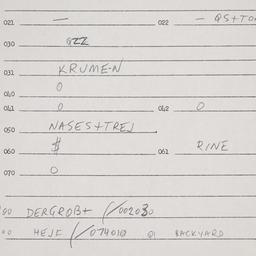 021 — 022 — QS+TO
030 QZZ
031 KRUMEN
040 0
041 0 042 0
050 NASES+TREJ
060 $ 061 RINE
070 0
00 DERGROB+ (/002030
00 HEJF (/074010 01 BACKYARD